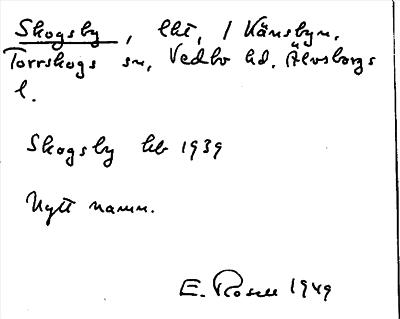 Skogsby, lht, / Känsbyn,
Torrskogs sn, Vedbo hd. Älvsborgs
l.
Skogsby hb 1939
Nytt namn.
E. Rosell 1949